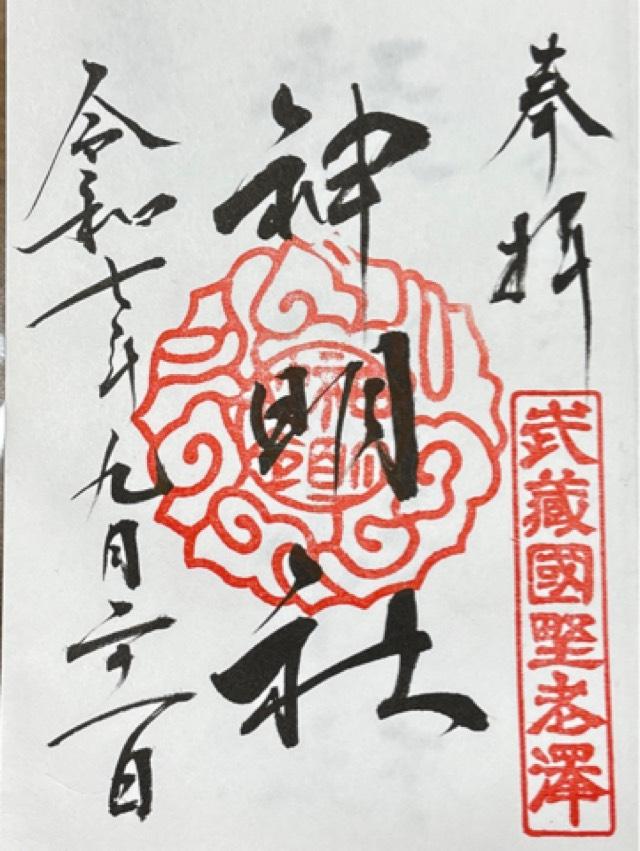 奉拝
武藏國野老澤
神明社
令和七年九月二十一日